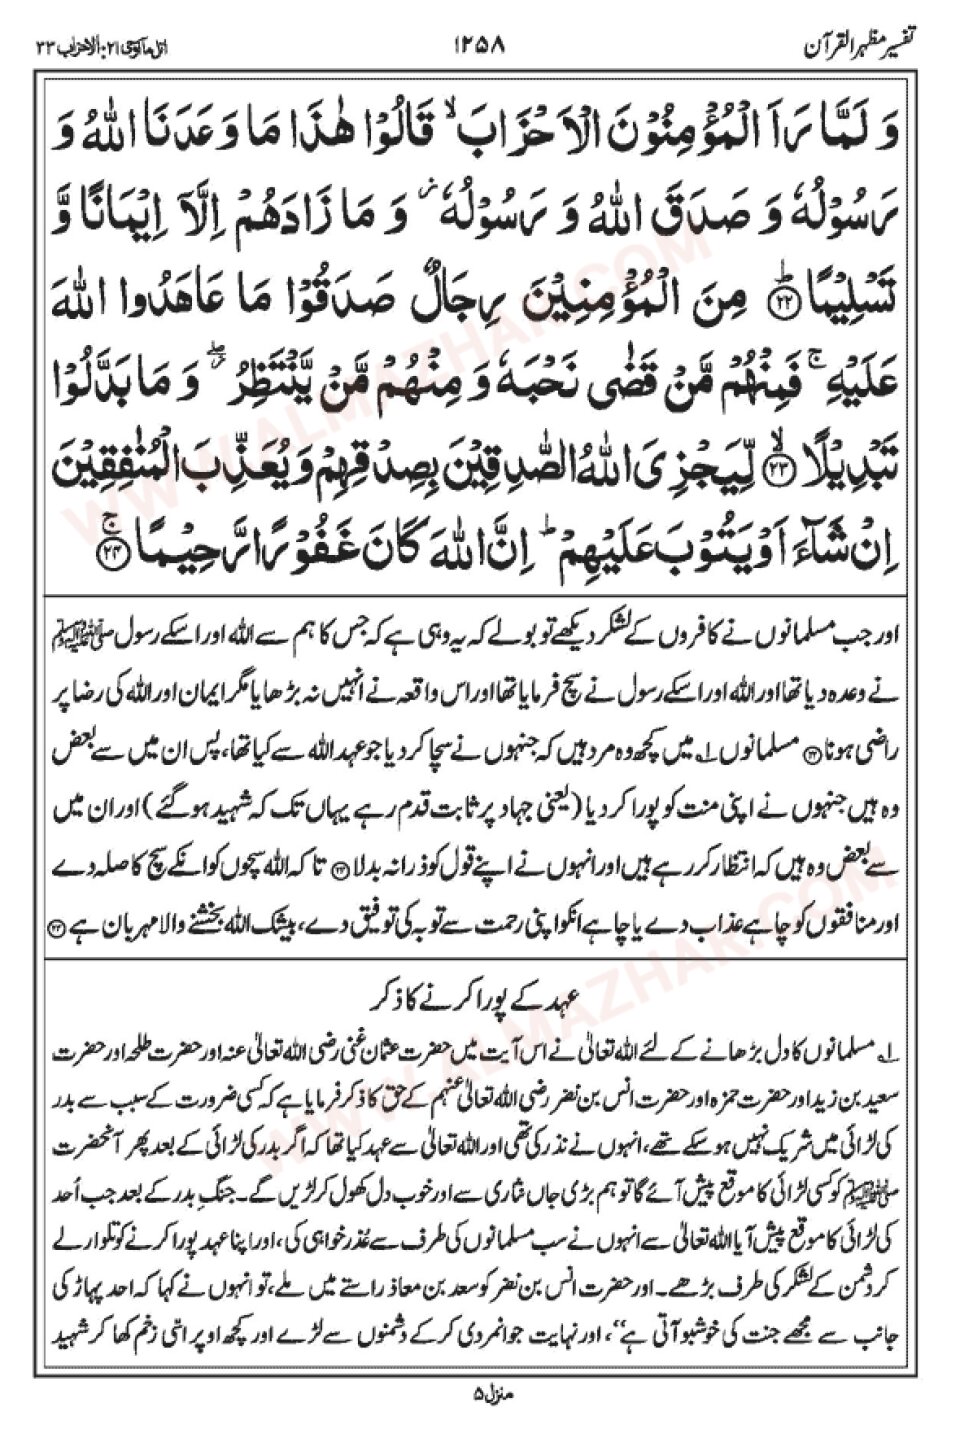 تفسیر مظہر القرآن
۱۲۵۸
اتل ما اوحی ۲۱: الاحزاب ۳۳
وَ لَمَّا رَاَ الْمُؤْمِنُوْنَ الْاَحْزَابَ ۙ قَالُوْا هٰذَا مَا وَعَدَنَا اللّٰهُ وَ
رَسُوْلُهٗ وَ صَدَقَ اللّٰهُ وَ رَسُوْلُهٗ ز وَ مَا زَادَهُمْ اِلَّاۤ اِیْمَانًا وَّ
تَسْلِیْمًا ؕ ۲۲ مِنَ الْمُؤْمِنِیْنَ رِجَالٌ صَدَقُوْا مَا عَاهَدُوا اللّٰهَ
عَلَیْهِ ۚ فَمِنْهُمْ مَّنْ قَضٰی نَحْبَهٗ وَ مِنْهُمْ مَّنْ یَّنْتَظِرُ ۖ وَ مَا بَدَّلُوْا
تَبْدِیْلًا ۙ ۲۳ لِّیَجْزِیَ اللّٰهُ الصّٰدِقِیْنَ بِصِدْقِهِمْ وَ یُعَذِّبَ الْمُنٰفِقِیْنَ
اِنْ شَآءَ اَوْ یَتُوْبَ عَلَیْهِمْ ؕ اِنَّ اللّٰهَ كَانَ غَفُوْرًا رَّحِیْمًا ۚ ۲۴
اور جب مسلمانوں نے کافروں کے لشکر دیکھے تو بولے کہ یہ وہی ہے کہ جس کا ہم سے اللہ اور اسکے رسول ﷺ
نے وعدہ دیا تھا اور اللہ اور اسکے رسول نے سچ فرمایا تھا اور اس واقعہ نے انہیں نہ بڑھایا مگر ایمان اور اللہ کی رضا پر
راضی ہونا ۲۲ مسلمانوں ۱؎ میں کچھ وہ مرد ہیں کہ جنہوں نے سچا کر دیا جو عہد اللہ سے کیا تھا، پس ان میں سے بعض
وہ ہیں جنہوں نے اپنی منت کو پورا کر دیا (یعنی جہاد پر ثابت قدم رہے یہاں تک کہ شہید ہو گئے) اور ان میں
سے بعض وہ ہیں کہ انتظار کر رہے ہیں اور انہوں نے اپنے قول کو ذرا نہ بدلا ۲۳ تا کہ اللہ سچوں کو انکے سچ کا صلہ دے
اور منافقوں کو چاہے عذاب دے یا چاہے انکو اپنی رحمت سے توبہ کی توفیق دے، بیشک اللہ بخشنے والا مہربان ہے ۲۴
عہد کے پورا کرنے کا ذکر
۱؎ مسلمانوں کا دل بڑھانے کے لئے اللہ تعالیٰ نے اس آیت میں حضرت عثمان غنی رضی اللہ تعالیٰ عنہ اور حضرت طلحہ اور حضرت
سعید بن زید اور حضرت حمزہ اور حضرت انس بن نضر رضی اللہ تعالیٰ عنہم کے حق کا ذکر فرمایا ہے کہ کسی ضرورت کے سبب سے بدر
کی لڑائی میں شریک نہیں ہو سکے تھے، انہوں نے نذر کی تھی اور اللہ تعالیٰ سے عہد کیا تھا کہ اگر بدر کی لڑائی کے بعد پھر آنحضرت
ﷺ کو کسی لڑائی کا موقع پیش آئے گا تو ہم بڑی جاں نثاری سے اور خوب دل کھول کر لڑیں گے۔ جنگِ بدر کے بعد جب اُحد
کی لڑائی کا موقع پیش آیا اللہ تعالیٰ سے انہوں نے سب مسلمانوں کی طرف سے عُذر خواہی کی، اور اپنا عہد پورا کرنے کو تلوار لے
کر دشمن کے لشکر کی طرف بڑھے۔ اور حضرت انس بن نضر کو سعد بن معاذ راستے میں ملے، تو انہوں نے کہا کہ احد پہاڑ کی
جانب سے مجھے جنت کی خوشبو آتی ہے“، اور نہایت جوانمردی کر کے دشمنوں سے لڑے اور کچھ اوپر اسّی زخم کھا کر شہید
منزل ۵
WWW.ALMAZHAR.COM
WWW.ALMAZHAR.COM